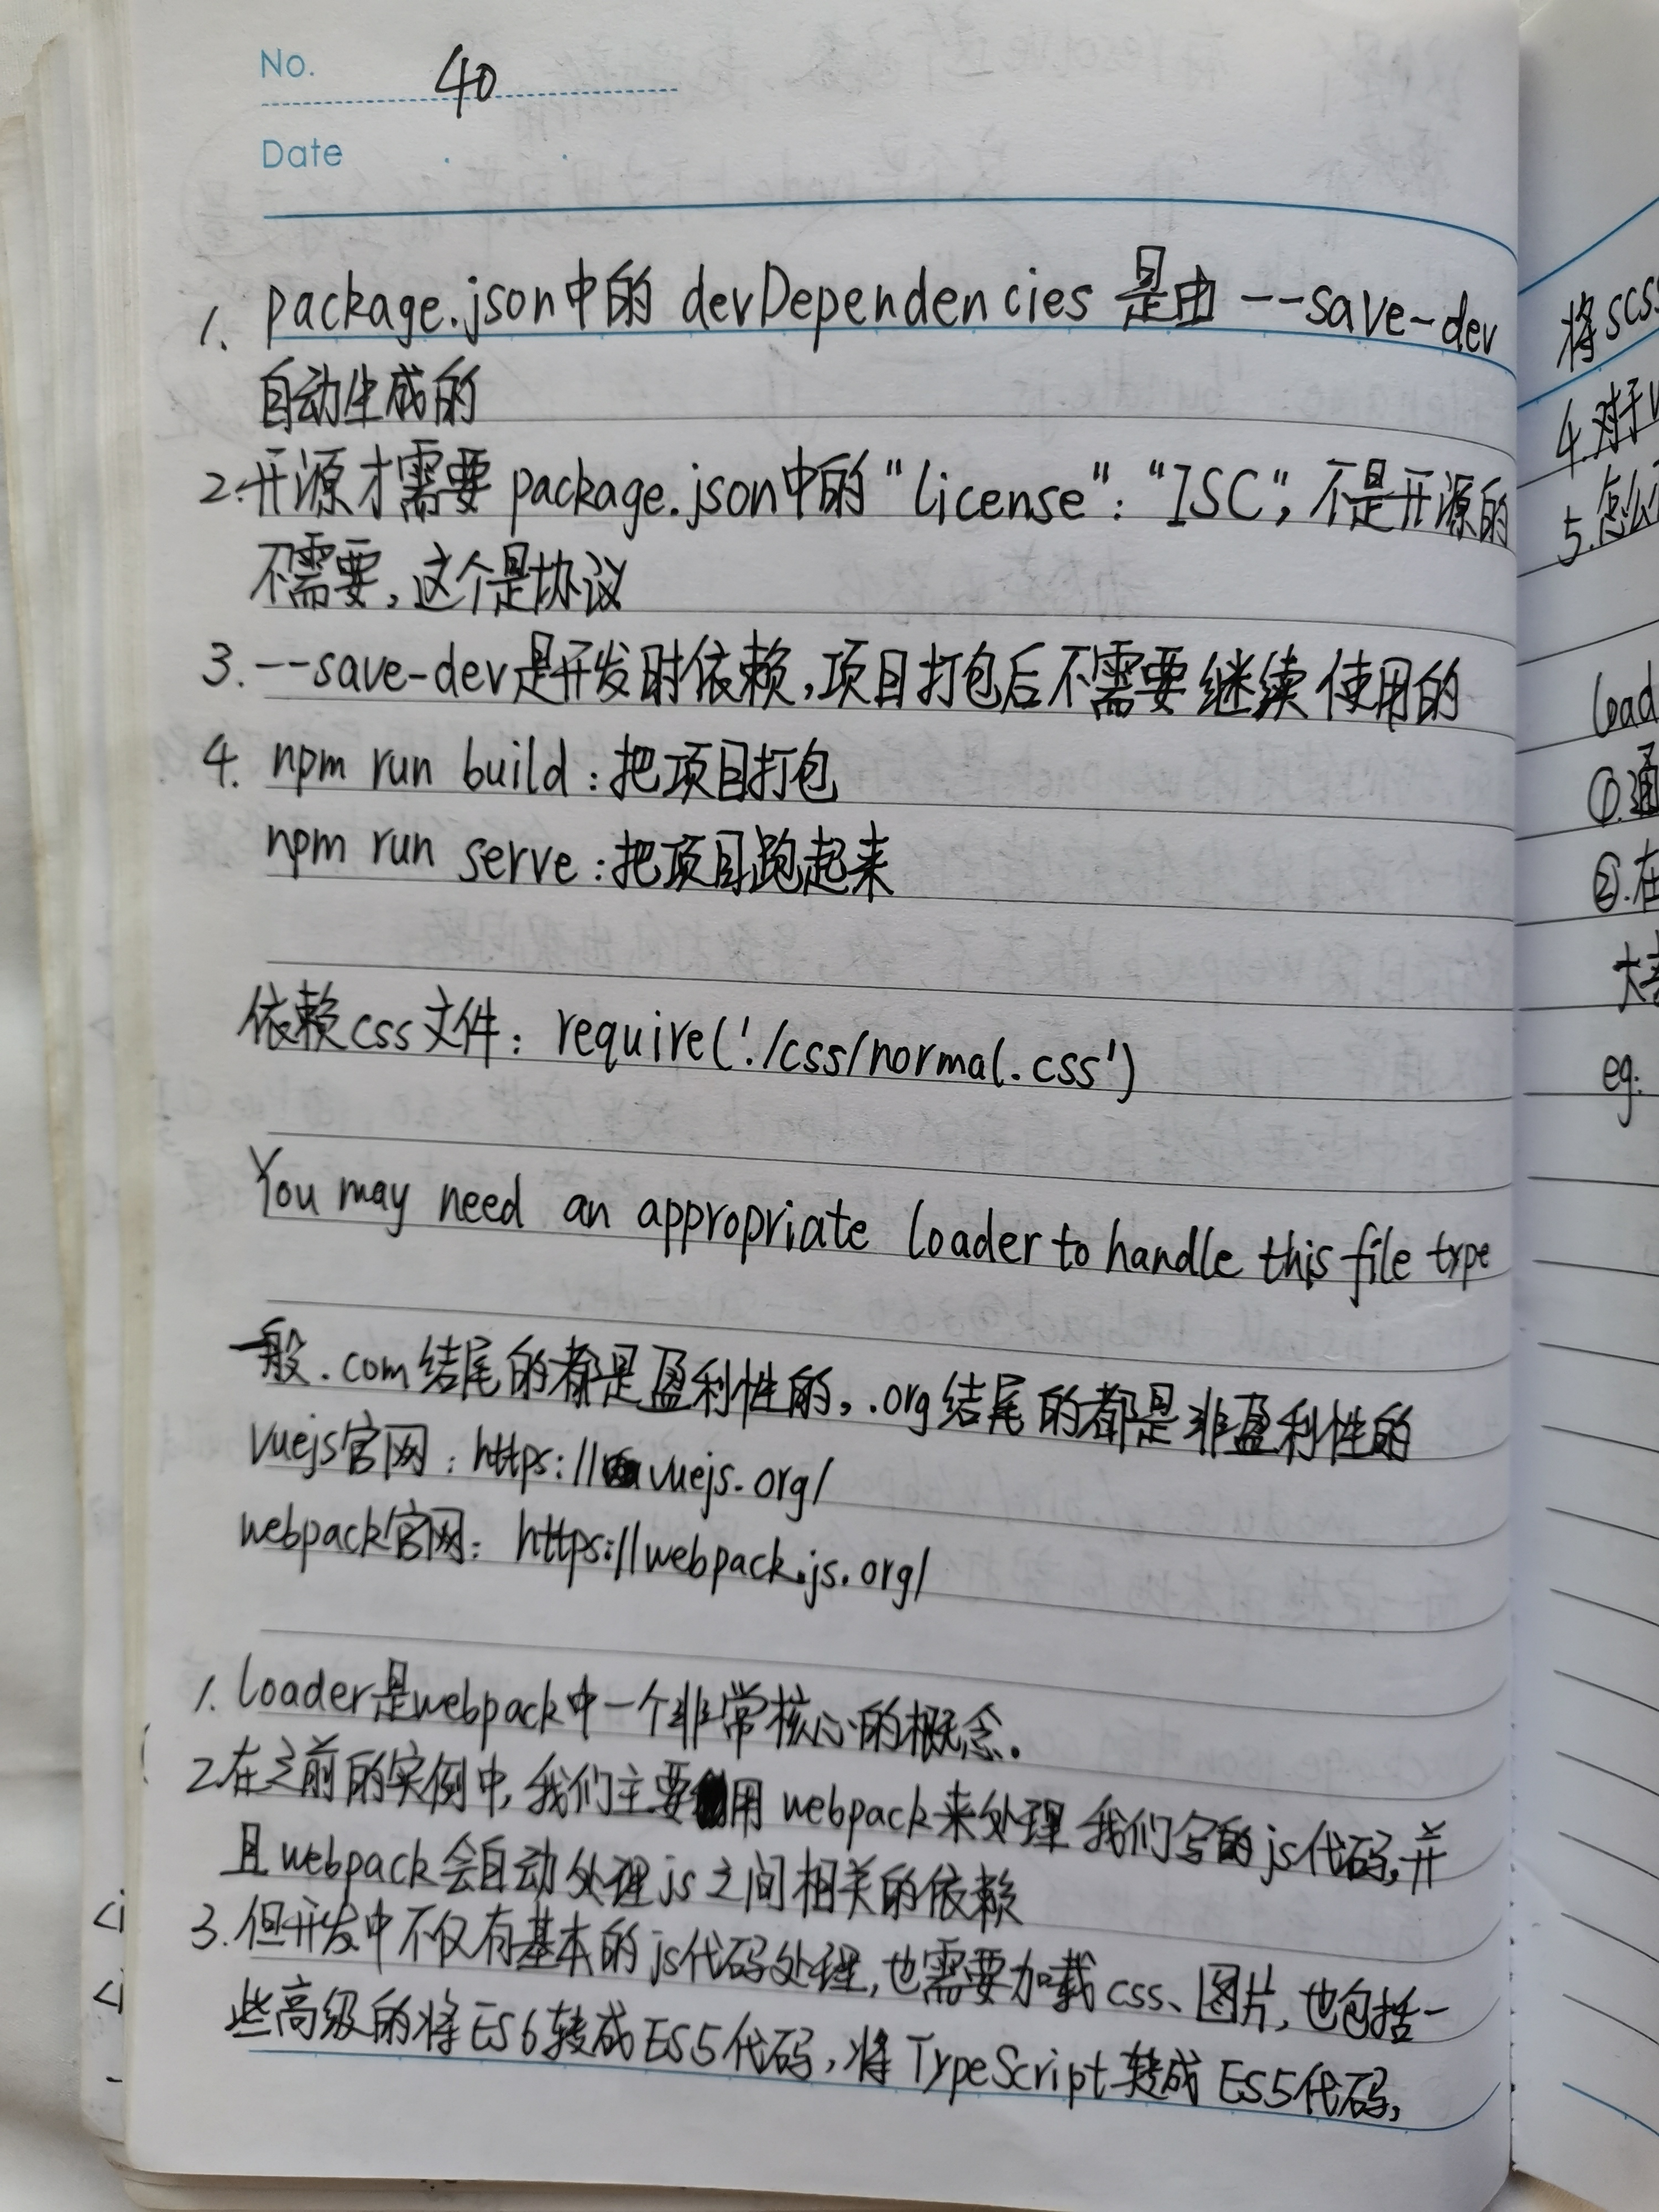 No. 40
Date
1. package.json中的 devDependencies 是由 --save-dev
自动生成的
2.开源才需要 package.json中的"license": "ISC", 不是开源的
不需要,这个是协议
3. --save-dev是开发时依赖,项目打包后不需要继续使用的
4. npm run build:把项目打包
npm run serve:把项目跑起来
依赖css文件: require('./css/normal.css')
You may need an appropriate loader to handle this file type
一般.com结尾的都是盈利性的, .org结尾的都是非盈利性的
vuejs官网: https://vuejs.org/
webpack官网: https://webpack.js.org/
1. loader是webpack中一个非常核心的概念.
2.在之前的实例中,我们主要用 webpack来处理我们写的js代码,并
且webpack会自动处理js之间相关的依赖
3.但开发中不仅有基本的js代码处理,也需要加载css、图片,也包括一
些高级的将ES6转成ES5代码,将TypeScript转成ES5代码,
将scss
4.对于
5.怎么
load
①.通
②.在
eg: